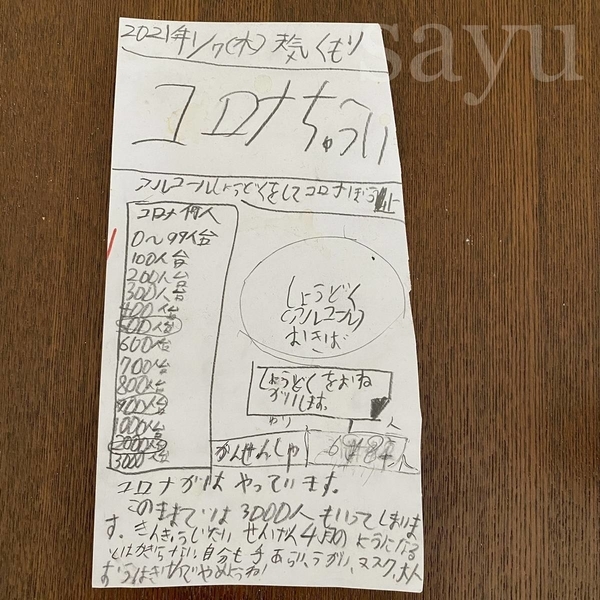 sayu
2021年1/7(木) 天気くもり
コロナちゅうい
アルコールしょうどくをしてコロナぼう止
コロナ何人
0〜99人台
100人台
200人台
300人台
400人台
500人台
600人台
700人台
800人台
900人台
1000人台
2000人台
3000人台
しょうどく
(アルコール)
おきば
しょうどくをおね
がいします。
人
かんせんしゃ
コロナがはやっています。
このままでは3000人もいってしまいま
す。きんきゅうじたいせんげん4月のようになる
とはかぎらない自分も手あらい、うがい、マスク、大人